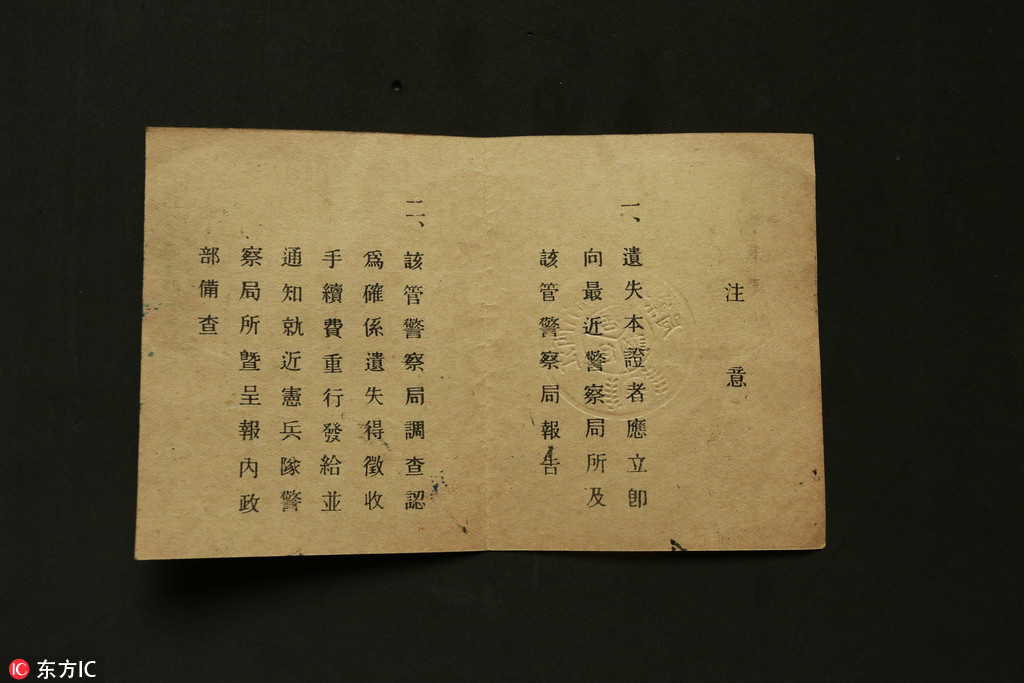 注意
一、遺失本證者應立卽
向最近警察局所及
該管警察局報告
二、該管警察局調查認
爲確係遺失得徵收
手續費重行發給並
通知就近憲兵隊警
察局所暨呈報內政
部備查
东方IC